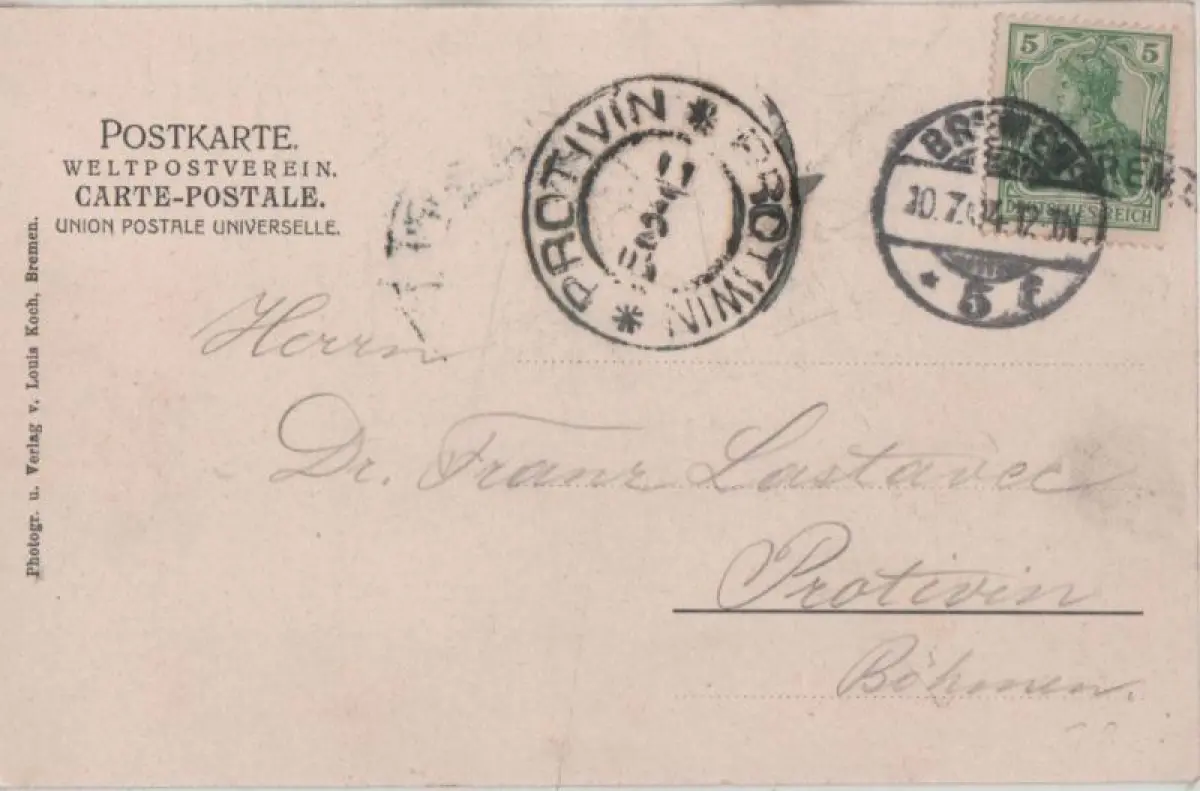 POSTKARTE.
WELTPOSTVEREIN.
CARTE-POSTALE.
UNION POSTALE UNIVERSELLE.
Photogr. u. Verlag v. Louis Koch, Bremen.
PROTIVIN * PROTIWIN *
5 5
DEUTSCHES REICH
BREMEN
10.7.04.12-1N.
* 5 f
Herrn
Dr. Franz Lastavec
Protivin
Böhmen.